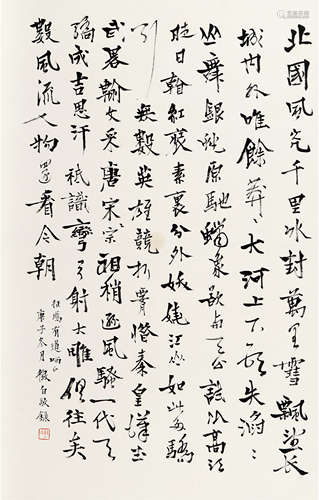 北國風光千里冰封萬里雪飄望長
城內外唯餘莽々大河上下頓失滔々
山舞銀蛇原馳蠟象欲與天公試比高須
晴日看紅裝素裹分外妖嬈江山如此多驕
引無數英雄競折腰惜秦皇漢
武畧輸文采唐宋宗祖稍遜風騷一代天
驕成吉思汗祇識彎弓射大雕俱往矣
數風流人物還看今朝
有道
庚子冬月